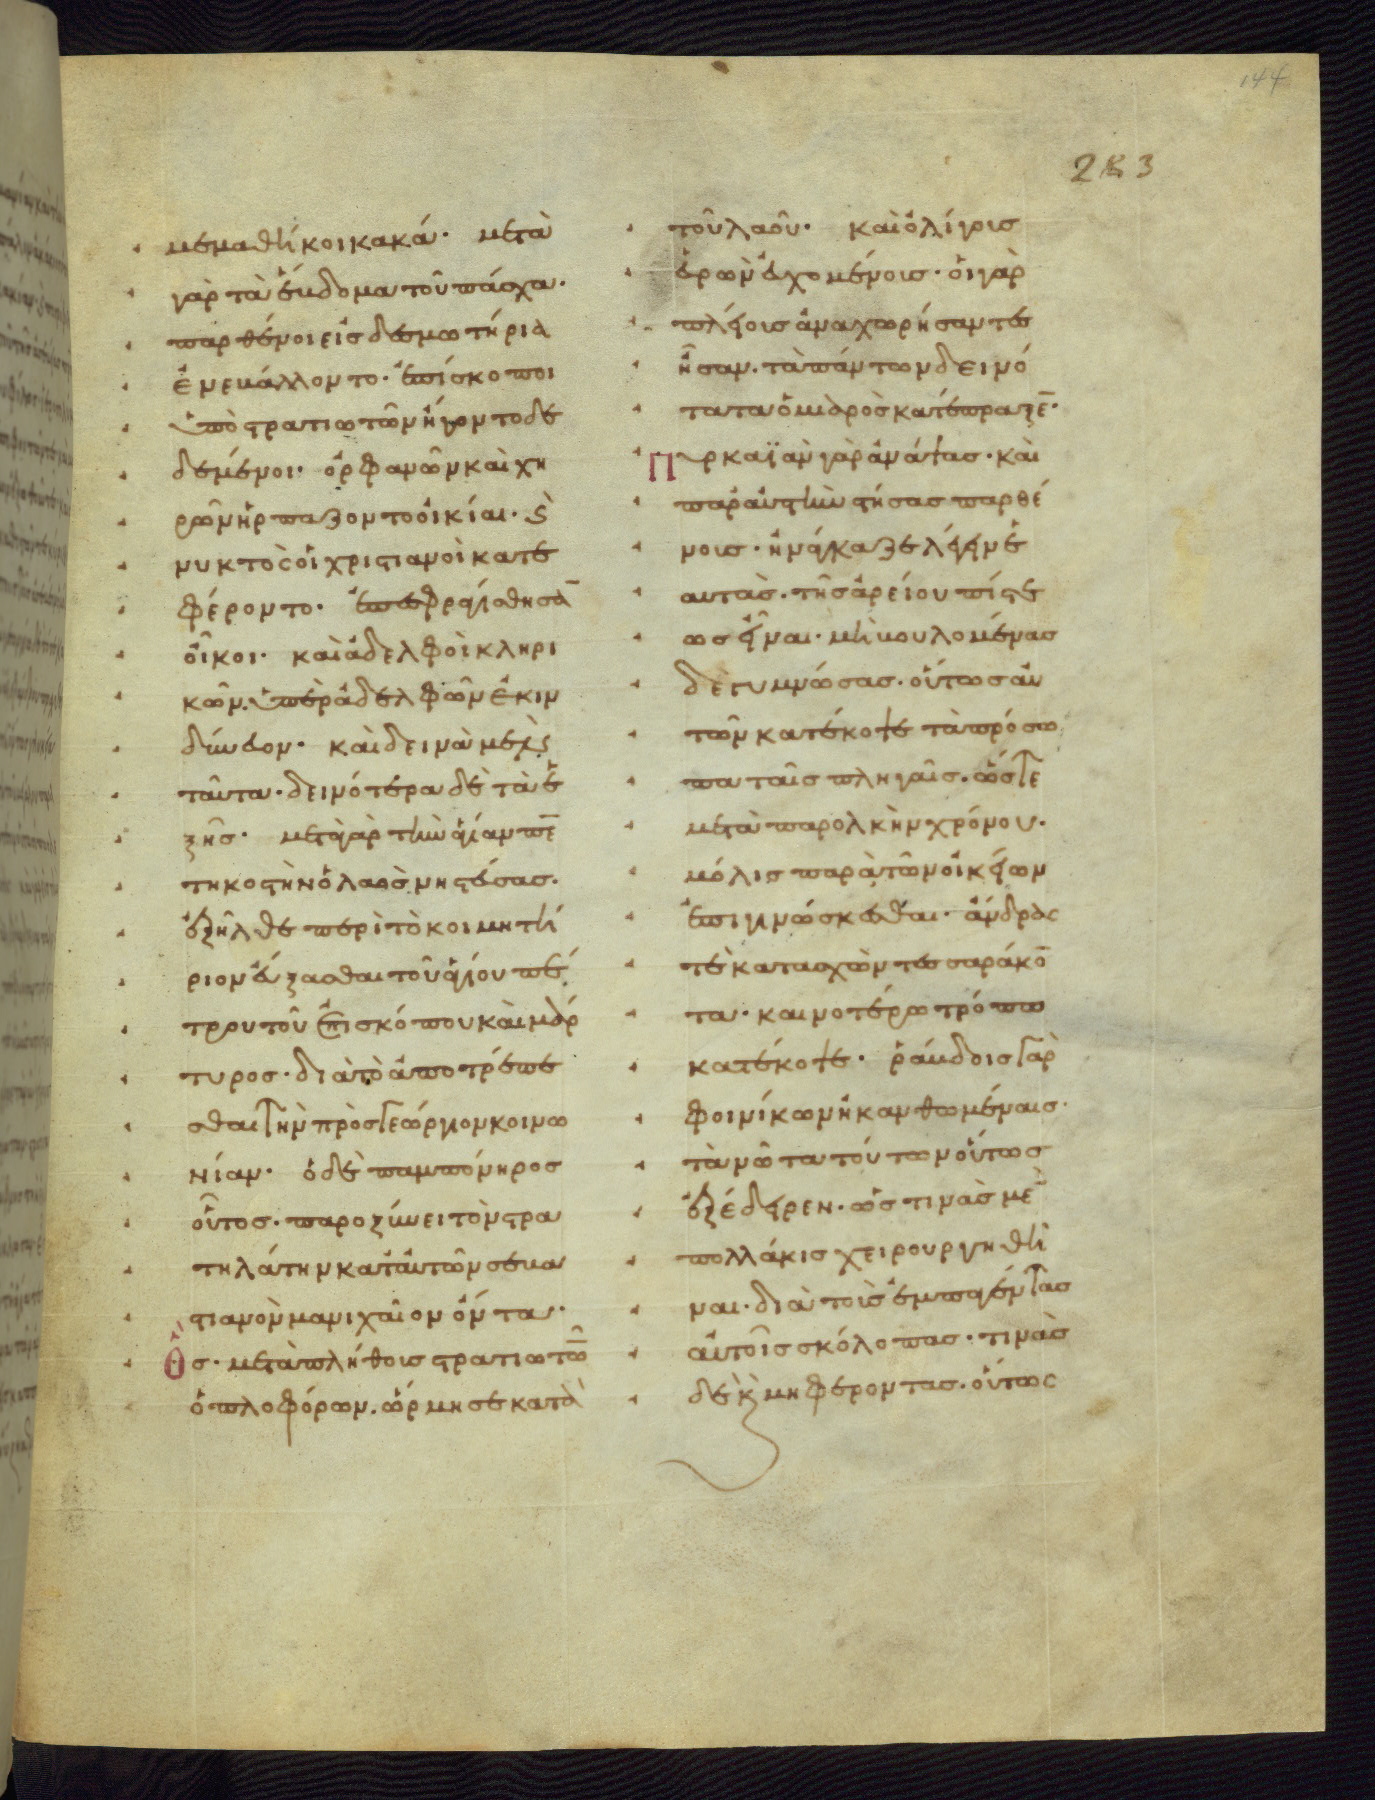 144
283
μεμαθήκοι κακά· μετὰ
γὰρ τὰ ἕβδομα τοῦ πάσχα·
παρθένοι εἰς δεσμωτήρια
ἐνεβάλλοντο· ἐπίσκοποι
ὑπὸ στρατιωτῶν ἤγοντο δε
δεμένοι· ὀρφανῶν καὶ χη
ρῶν ἡρπάζοντο οἰκίαι· καὶ
νυκτὸς οἱ χριστιανοὶ κατε
φέροντο· ἐπεσφραγίσθησαν
οἶκοι· καὶ ἀδελφοὶ κληρι
κῶν· ὑπὲρ ἀδελφῶν ἐκιν
δύνευον· καὶ δεινὰ μὲν
ταῦτα· δεινότερα δὲ τὰ ἑ
ξῆς· μετὰ γὰρ τὴν ἁγίαν πεν
τηκοστὴν ὁ λαὸς νηστεύσας·
ἐξῆλθε περὶ τὸ κοιμητή
ριον εὔξασθαι τοῦ ἁγίου πέ
τρου τοῦ ἐπισκόπου καὶ μάρ
τυρος· διὰ τὸ ἀποτρέπε
σθαι τὴν πρὸς γεώργιον κοινω
νίαν· ὁ δὲ παμπόνηρος
οὗτος· παροξύνει τὸν στρα
τηλάτην κατ' αὐτῶν σεβα
στιανὸν μανιχαῖον ὄντα·
ὃς· μετὰ πλήθους στρατιωτῶν
ὁπλοφόρων· ὥρμησε κατὰ
τοῦ λαοῦ· καὶ ὀλίγοις
εὑρὼν εὐχομένοις· οἱ γὰρ
πλείους ἀναχωρήσαντες
ἦσαν· τὰ πάντων δεινό
τατα ὁ μιαρὸς κατέπραξεν·
Πυρκαϊὰν γὰρ ἀνάψας· καὶ
παρ' αὐτὴν στήσας παρθέ
νους· ἠνάγκαζε λέγειν ἑ
αυτὰς· τῆς ἀρείου πίστε
ως εἶναι· μὴ βουλομένας
δὲ γυμνώσας· οὕτως αὐ
τῶν κατέκοψε τὰ πρόσω
πα ταῖς πληγαῖς· ὥστε
μετὰ παρολκὴν χρόνου·
μόλις παρὰ τῶν οἰκείων
ἐπιγινώσκεσθαι· ἄνδρας
τε κατασχὼν τεσσαράκον
τα· καινοτέρω τρόπω
κατέκοψε· ῥάβδοις γὰρ
φοινίκων ἠκανθωμέναις·
τὰ νῶτα τούτων οὕτως
ἐξέδειρεν· ὥς τινας μὲν
πολλάκις χειρουργηθῆ
ναι· διὰ τοὺς ἐμπαγέντας
αὐτοῖς σκόλοπας· τινὰς
δὲ καὶ μὴ φέροντας· οὕτως